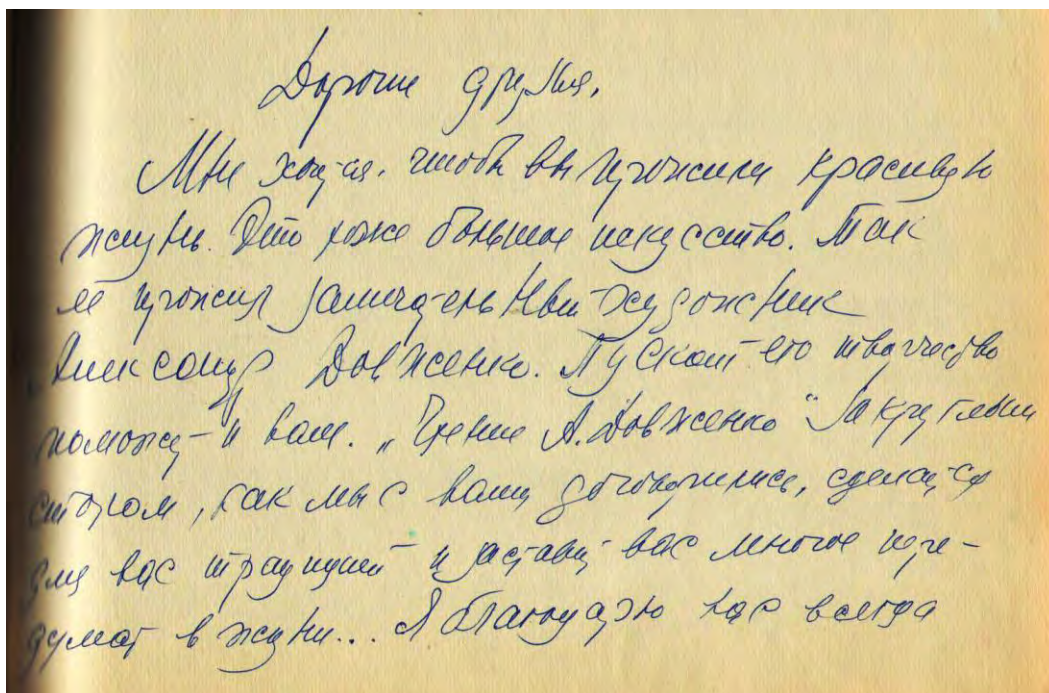 Дорогие друзья,
Мне хочется, чтобы вы прожили красивую
жизнь. Это тоже большое искусство. Так
её прожил замечательный художник
Александр Довженко. Пускай его творчество
поможет и вам. „Чтение А. Довженко" за круглым
столом, как мы с вами договорились, сделается
для вас традицией и заставит вас многое пере-
думать в жизни... Я благодарю вас всегда